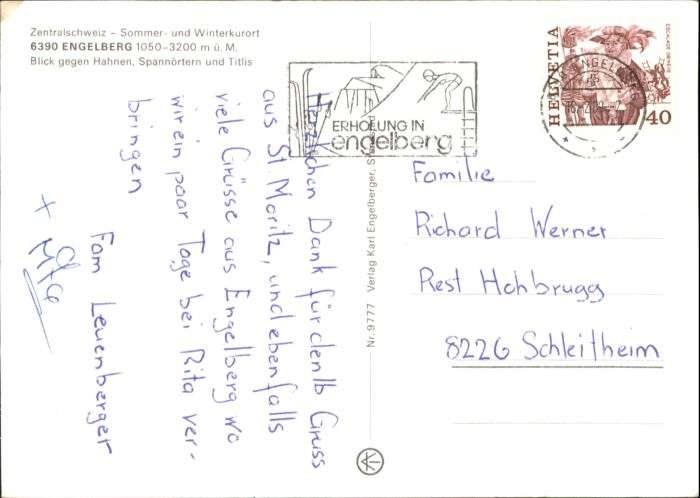 Zentralschweiz – Sommer- und Winterkurort
6390 ENGELBERG 1050–3200 m ü. M.
Blick gegen Hahnen, Spannörtern und Titlis
ERHOLUNG IN
engelberg
HELVETIA
40
Herzlichen Dank für den lb Gruss
aus St Moritz, und ebenfalls
viele Grüsse aus Engelberg wo
wir ein paar Tage bei Rita ver-
bringen
Fam Leuenberger
+
Nr. 9777 Verlag Karl Engelberger,
Familie
Richard Werner
Rest Hohbrugg
8226 Schleitheim